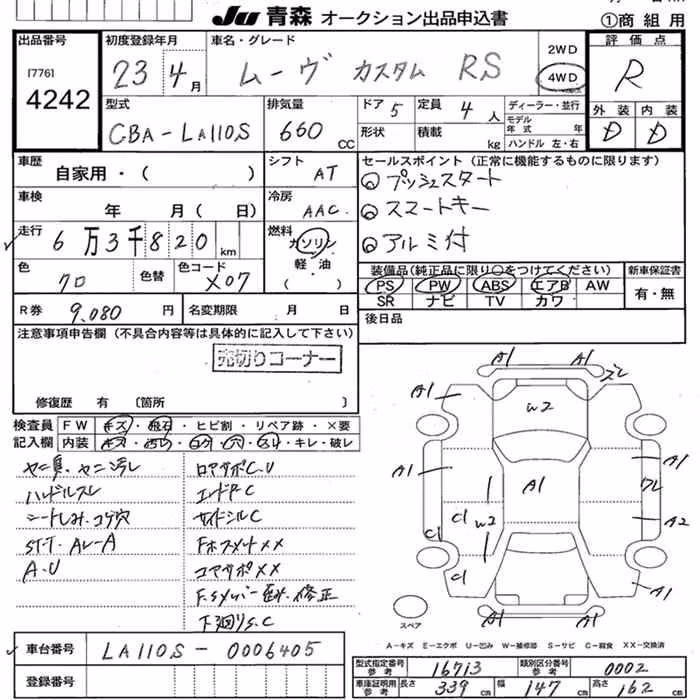 Ju 青森 オークション出品申込書
①商組用
出品番号
[776]
4242
初度登録年月
23年4月
車名・グレード
ムーヴ カスタム RS
2WD
4WD
評価点
R
型式
CBA-LA110S
排気量
660 CC
ドア 5
定員 4人
形状
積載 kg
ディーラー・並行
モデル年式 年
ハンドル 左・右
外装 内装
D D
車歴
自家用・( )
シフト AT
車検
年 月( 日)
冷房 AAC
走行
6万3千820km
燃料
ガソリン
軽・油
( )
色 クロ
色替
色コード X07
セールスポイント(正常に機能するものに限ります)
プッシュスタート
スマートキー
アルミ付
装備品(純正品に限り○をつけてください)
PS PW ABS エアB AW
SR ナビ TV カワ
新車保証書
有・無
R券 9,080円
名変期限 月 日
後日品
注意事項申告欄(不具合内容等は具体的に記入して下さい)
売切りコーナー
修復歴 有 〔箇所 〕
検査員記入欄
FW キズ・飛石・ヒビ割・リペア跡・×要
内装 キズ・汚レ・コゲ・穴・スレ・キレ・破レ
ヤニ臭、ヤニ汚レ
ハンドルスレ
シートしみ、コゲ穴
ST-T・ALーA
A・U
ロアサポC、U
エンドPC
サイドシルC
コアサポ××
下廻りS、C
A1 A1 ズレ
A1 A1
W2
A1 A1 A1
ワレ
C1 W2 A2
C1
C1 A1
スペア
A-キズ E-エクボ U-凹み W-補修跡 S-サビ C-腐食 XX-交換済
車台番号 LA110S-0006405
登録番号
型式指定番号参考 16713
類別区分番号参考 0002
車庫証明用参考 長さ 339cm 幅 147cm 高さ 162cm